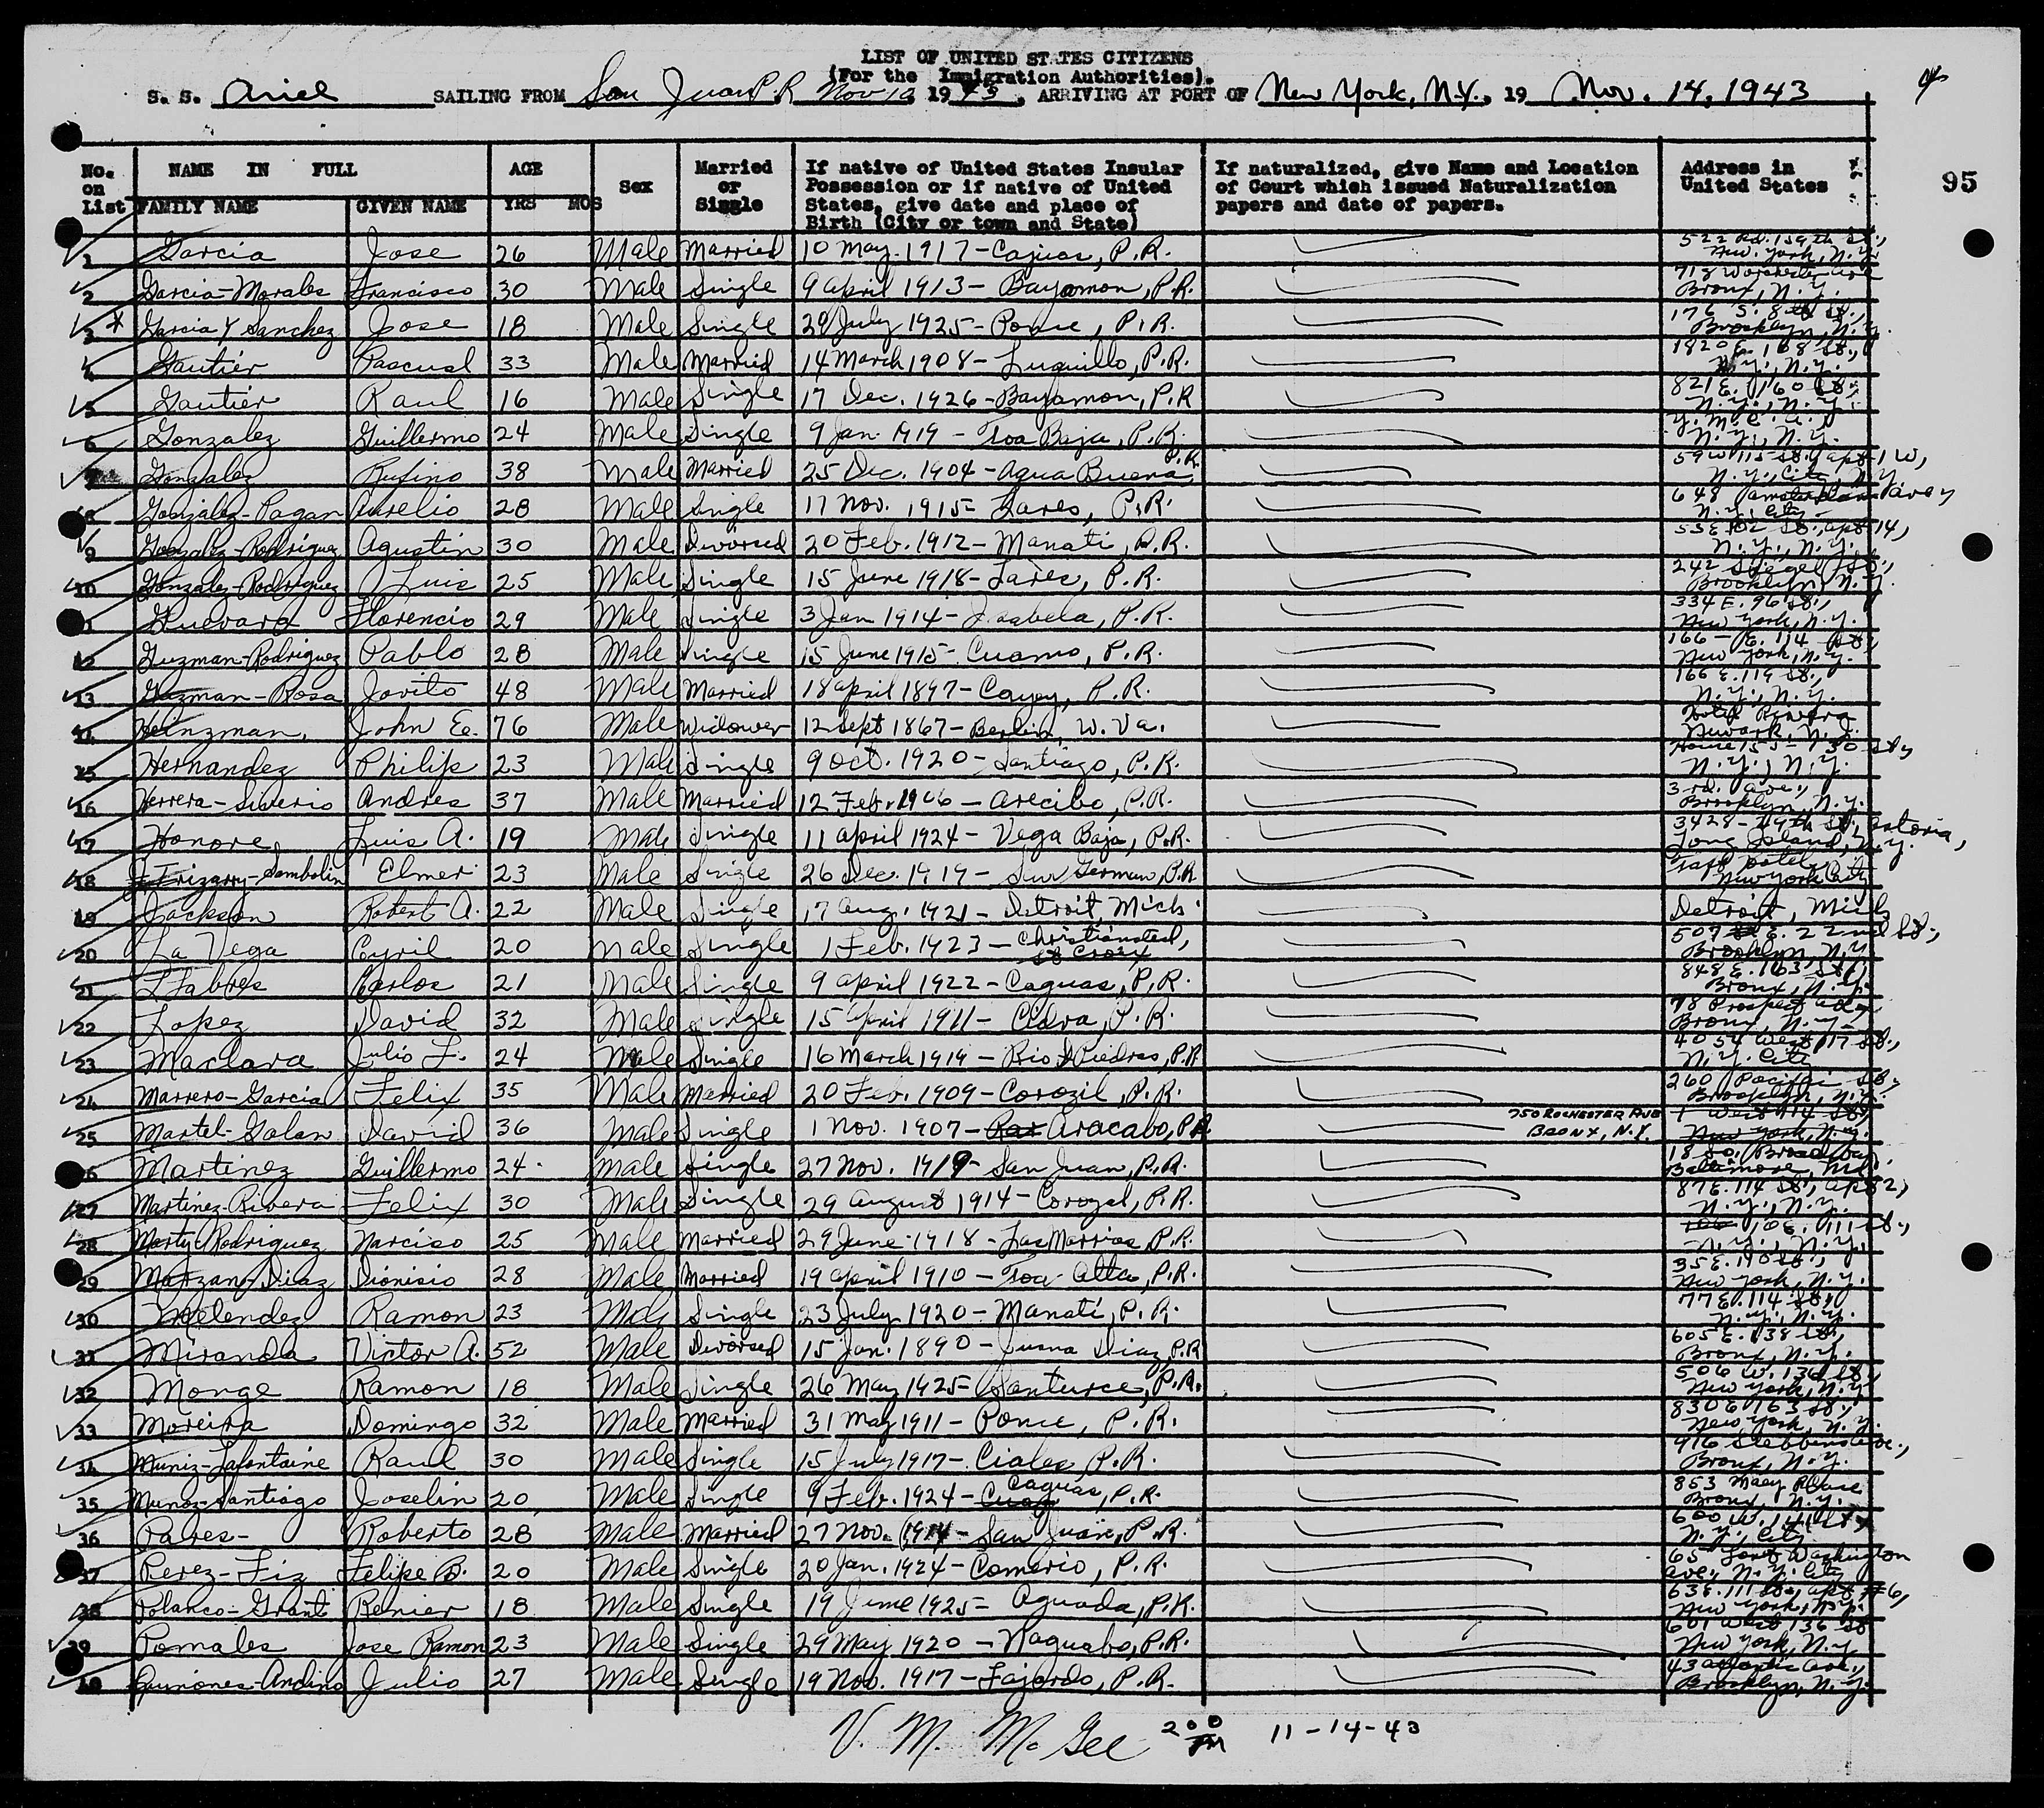 LIST OF UNITED STATES CITIZENS
(For the Immigration Authorities).
S. S. Ariel SAILING FROM San Juan P.R Nov 10 1943, ARRIVING AT PORT OF New York, N.Y., 19 Nov. 14, 1943
95
No. on List NAME IN FULL AGE Sex Married or Single If native of United States Insular Possession or if native of United States, give date and place of Birth (City or town and State) If naturalized, give Name and Location of Court which issued Naturalization papers and date of papers. Address in United States
FAMILY NAME GIVEN NAME YRS MOS
1 Garcia Jose 26 Male Married 10 May. 1917 - Caguas, P.R. 522 159th St., New York, N.Y.
2 Garcia-Morales Francisco 30 Male Single 9 April 1913 - Bayamon, P.R. 718 Ave Bronx, N.Y.
3 * Garcia Y Sanchez Jose 18 Male Single 29 July 1925 - Ponce, P.R. 176 S. 8th St., Brooklyn, N.Y.
4 Gautier Pascual 33 Male Married 14 March 1908 - Luquillo, P.R. 1820 E. 168 St., N.Y., N.Y.
5 Gautier Raul 16 Male Single 17 Dec. 1926 - Bayamon, P.R 821 E. 160 St., N.Y., N.Y.
6 Gonzalez Guillermo 24 Male Single 9 Jan. 1919 - Toa Baja, P.R. Y.M.C.A., N.Y., N.Y.
7 Gonzalez Rufino 38 Male Married 25 Dec. 1904 - Agua Buena P.R. 59 W 115 St. Apt 1 W, N.Y., City, N.Y
8 Gonzalez-Pagan Aurelio 28 Male Single 17 Nov. 1915 - Lares, P.R. 648 Amsterdam Ave, N.Y. City
9 Gonzalez-Rodriguez Agustin 30 Male Divorced 20 Feb. 1912 - Manati, P.R. 55 E 102 St. Apt 14, N.Y., N.Y.
10 Gonzalez-Rodriguez Luis 25 Male Single 15 June 1918 - Lares, P.R. 242 Siegel St., Brooklyn, N.Y.
11 Guevara Florencio 29 Male Single 3 Jan 1914 - Isabela, P.R. 334 E. 96 St., New York, N.Y.
12 Guzman-Rodriguez Pablo 28 Male Single 15 June 1915 - Cuamo, P.R. 166 - E. 114 St., New York, N.Y.
13 Guzman-Rosa Jovito 48 Male Married 18 April 1897 - Cayey, P.R. 166 E. 119 St., N.Y., N.Y.
14 Heinzman, John E. 76 Male Widower 12 Sept 1867 - Berlin, W. Va. Hotel Riviera Newark, N.J.
15 Hernandez Philip 23 Male Single 9 Oct. 1920 - Santiago, P.R. House 155 - 130 St, N.Y., N.Y.
16 Herrera-Siverio Andres 37 Male Married 12 Feb. 1906 - Arecibo, P.R. 3rd. Ave., Brooklyn, N.Y.
17 Honore, Luis A. 19 Male Single 11 April 1924 - Vega Baja, P.R. 3428 - 49th St, Astoria, Long Island, N.Y.
18 Irizarry-Sambolin Elmer 23 Male Single 26 Dec. 1919 - San German, P.R Taft Hotel, New York City
19 Jackson Robert A. 22 Male Single 17 Aug. 1921 - Detroit, Mich. Detroit, Mich
20 La Vega Cyril 20 Male Single 1 Feb. 1923 - Christiansted, St Croix 507 E. 22nd St., Brooklyn, N.Y.
21 Lfabres Carlos 21 Male Single 9 April 1922 - Caguas, P.R. 848 E. 163 St, Bronx, N.Y.
22 Lopez David 32 Male Single 15 April 1911 - Cidra, P.R. 78 Prospect Ave Bronx, N.Y.
23 Maclara Julio F. 24 Male Single 16 March 1919 - Rio Piedras, P.R 4054 West 117 St., N.Y. City
24 Marrero-Garcia Felix 35 Male Married 20 Feb. 1909 - Corozil, P.R. 260 Pacific St, Brooklyn, N.Y.
25 Martel-Galan David 36 Male Single 1 Nov. 1907 - Aracabo, P.R 750 ROCHESTER AVE BRONX, N.Y. New York, N.Y.
26 Martinez Guillermo 24 Male Single 27 Nov. 1919 - San Juan, P.R. 18 So. Broadway, Baltimore, Md.
27 Martinez-Rivera Felix 30 Male Single 29 August 1914 - Corozal, P.R. 87 E. 114 St., Apt 2, N.Y., N.Y.
28 Marty Rodriguez Narciso 25 Male Married 29 June 1918 - Las Marias, P.R. 10 E. 111 St., N.Y., N.Y.
29 Marzan-Diaz Dionisio 28 Male Married 19 April 1910 - Toa-Alta, P.R. 35 E. 110 St., New York, N.Y.
30 Melendez Ramon 23 Male Single 23 July 1920 - Manati, P.R. 77 E. 114 St., N.Y., N.Y.
31 Miranda Victor A. 52 Male Divorced 15 Jan. 1890 - Juana Diaz, P.R 605 E. 138 St., Bronx, N.Y.
32 Monge Ramon 18 Male Single 26 May 1925 - Santurce, P.R. 506 W. 136 St., New York, N.Y.
33 Moreira Domingo 32 Male Married 31 May 1911 - Ponce, P.R. 830 E 163 St., New York, N.Y.
34 Muniz-Lafontaine Raul 30 Male Single 15 July 1917 - Ciales, P.R. 916 Stebbins Ave., Bronx, N.Y.
35 Munoz-Santiago Joselin 20 Male Single 9 Feb. 1924 - Caguas, P.R. 853 Macy Place Bronx, N.Y.
36 Pares- Roberto 28 Male Married 27 Nov. 1914 - San Juan, P.R. 600 W. 141 St N.Y., City
37 Perez-Fiz Felipe B. 20 Male Single 20 Jan. 1924 - Comerio, P.R. 65 Fort Washington Ave, N.Y. City
38 Polanco-Grant Renier 18 Male Single 19 June 1925 - Aguada, P.R. 63 E. 111 St., Apt #6, New York, N.Y.
39 Pomales Jose Ramon 23 Male Single 29 May 1920 - Naguabo, P.R. 601 West 136 St New York, N.Y
40 Quinones-Andino Julio 27 Male Single 19 Nov. 1917 - Fajardo, P.R. 43 Atlantic Ave., Brooklyn, N.Y.
V. M. McGee 2 00 PM 11-14-43